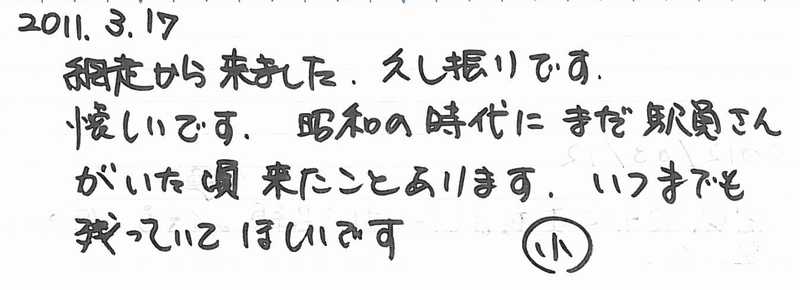 2011.3.17
網走から来ました. 久し振りです.
懐しいです. 昭和の時代に まだ駅員さん
がいた頃 来たことあります. いつまでも
残っていて ほしいです 小